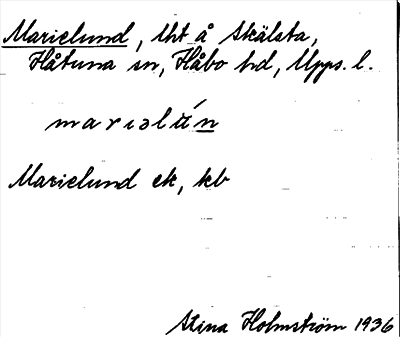 Marielund, lht å Skälsta,
Håtuna sn, Håbo hd, Upps. l.
marıəlɯ́n
Marielund ek, kb
Stina Holmström 1936